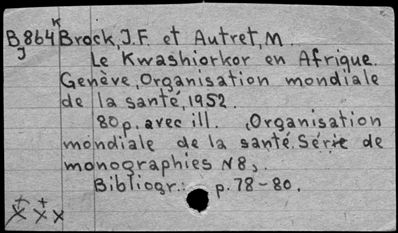 K
B864 Brock, J.F. et Autret, M.
J
Le Kwashiorkor en Afrique.
Genève, Organisation mondiale
de la santé, 1952.
80p. avec ill. (Organisation
mondiale de la santé. Série de
monographies N8)
Bibliogr.: p. 78-80.
+ +
X X x